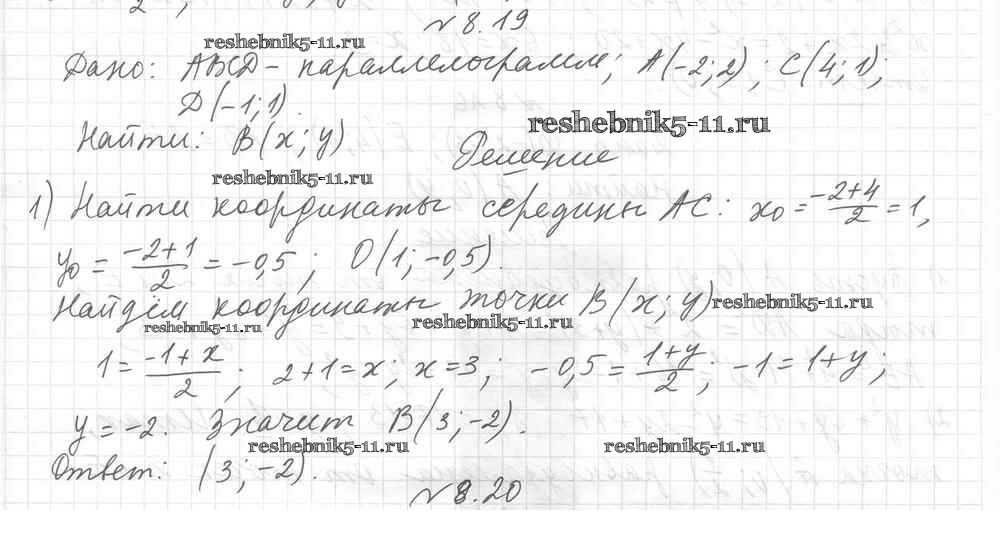 №8.19
reshebnik5-11.ru
Дано: ABCD - параллелограмм; A(-2;2); C(4;1);
D(-1;1).
reshebnik5-11.ru
Найти: B(x;y)
Решение
reshebnik5-11.ru
1) Найти координаты середины AC: x₀ = (-2+4)/2 = 1,
y₀ = (-2+1)/2 = -0,5; O(1;-0,5).
Найдём координаты точки B(x;y) reshebnik5-11.ru
reshebnik5-11.ru reshebnik5-11.ru
1 = (-1+x)/2; 2+1=x; x=3; -0,5 = (1+y)/2; -1=1+y;
y=-2. Значит B(3;-2).
reshebnik5-11.ru reshebnik5-11.ru
Ответ: (3;-2).
№8.20